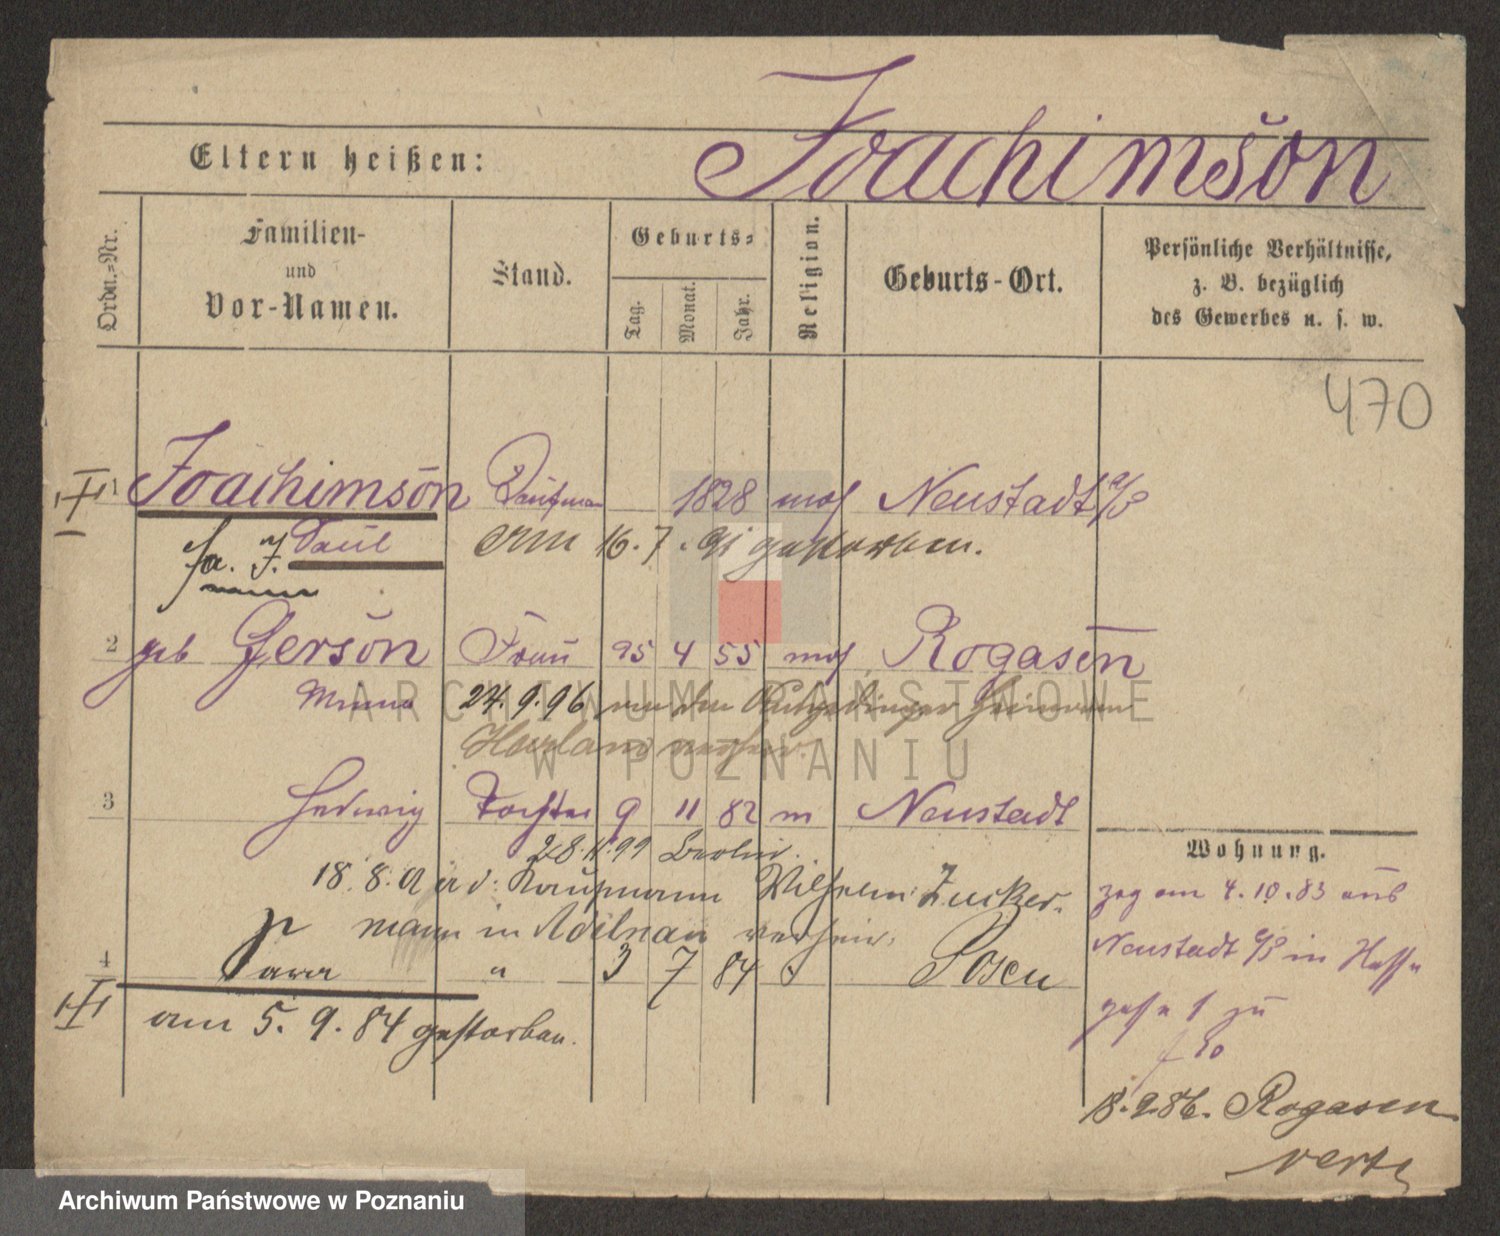 Joachimsōn
Eltern heißen:
Ordn.=Nr.
Familien-
und
Vor-Namen.
Stand.
Geburts=
Tag.
Monat.
Jahr.
Religion.
Geburts-Ort.
Persönliche Verhältnisse,
z. B. bezüglich
des Gewerbes u. s. w.
470
1 Joachimsōn Kaufman 1828 mos Neustadt a/P
fa. J. Paul am 16.7.91 gestorben.
2 geb Gersŏn Frau 25 4 55 mos Rogasen
Minna 24.9.96 an den
3 Hedwig Tochter 9 11 82 m Neustadt
28.11.99 Berlin.
18.8. a d. Kaufmann Wilhelm Zucker-
mann in Adelnau
4 Sara " 3 7 84 Posen
am 5.9.84 gestorben.
Wohnung.
zog am 4.10.83 aus
Neustadt a/P in
1 zu
18.9.86. Rogasen
verte
ARCHIWUM PAŃSTWOWE
W POZNANIU
Archiwum Państwowe w Poznaniu